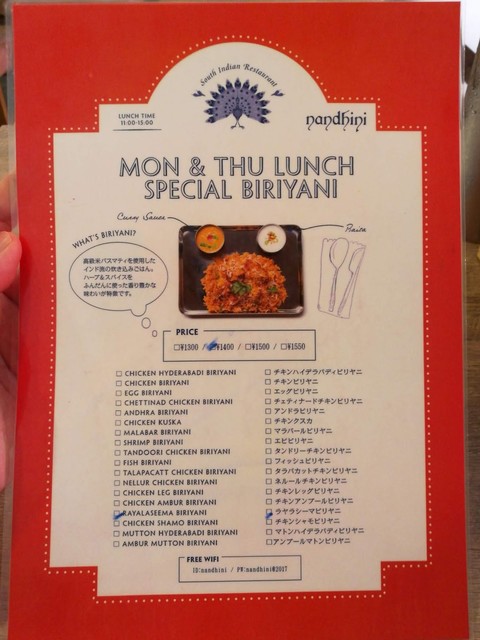 South Indian Restaurant
LUNCH TIME
11:00-15:00
nandhini
MON & THU LUNCH
SPECIAL BIRIYANI
Curry Sauce
Raita
WHAT'S BIRIYANI?
高級米バスマティを使用した
インド流の炊き込みごはん。
ハーブ&スパイスを
ふんだんに使った香り豊かな
味わいが特徴です。
PRICE
□¥1300 / □¥1400 / □¥1500 / □¥1550
□ CHICKEN HYDERABADI BIRIYANI □ チキンハイデラバディビリヤニ
□ CHICKEN BIRIYANI □ チキンビリヤニ
□ EGG BIRIYANI □ エッグビリヤニ
□ CHETTINAD CHICKEN BIRIYANI □ チェティナードチキンビリヤニ
□ ANDHRA BIRIYANI □ アンドラビリヤニ
□ CHICKEN KUSKA □ チキンクスカ
□ MALABAR BIRIYANI □ マラバールビリヤニ
□ SHRIMP BIRIYANI □ エビビリヤニ
□ TANDOORI CHICKEN BIRIYANI □ タンドリーチキンビリヤニ
□ FISH BIRIYANI □ フィッシュビリヤニ
□ TALAPACATT CHICKEN BIRIYANI □ タラパカットチキンビリヤニ
□ NELLUR CHICKEN BIRIYANI □ ネルールチキンビリヤニ
□ CHICKEN LEG BIRIYANI □ チキンレッグビリヤニ
□ CHICKEN AMBUR BIRIYANI □ チキンアンブールビリヤニ
□ RAYALASEEMA BIRIYANI □ ラヤラシーマビリヤニ
□ CHICKEN SHAMO BIRIYANI □ チキンシャモビリヤニ
□ MUTTON HYDERABADI BIRIYANI □ マトンハイデラバディビリヤニ
□ AMBUR MUTTON BIRIYANI □アンブールマトンビリヤニ
FREE WIFI
ID:nandhini / PW:nandhini@2017